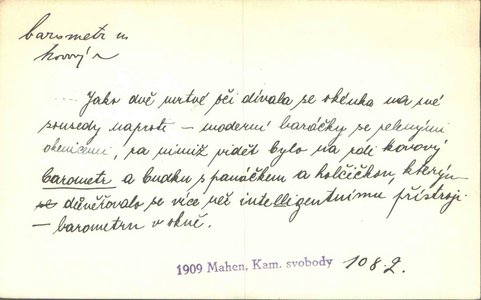 barometr m.
kovový
Jako dvě mrtvé oči dívala se okénka na své
sousedy naproti – moderní baráčky se zelenými
okenicemi, za nimiž vidět bylo na zdi kovový
barometr a budku s panáčkem a holčičkou, kterým
se důvěřovalo se více než intelligentnímu přístroji
– barometru v okně.
1909 Mahen, Kam. svobody 108.2.